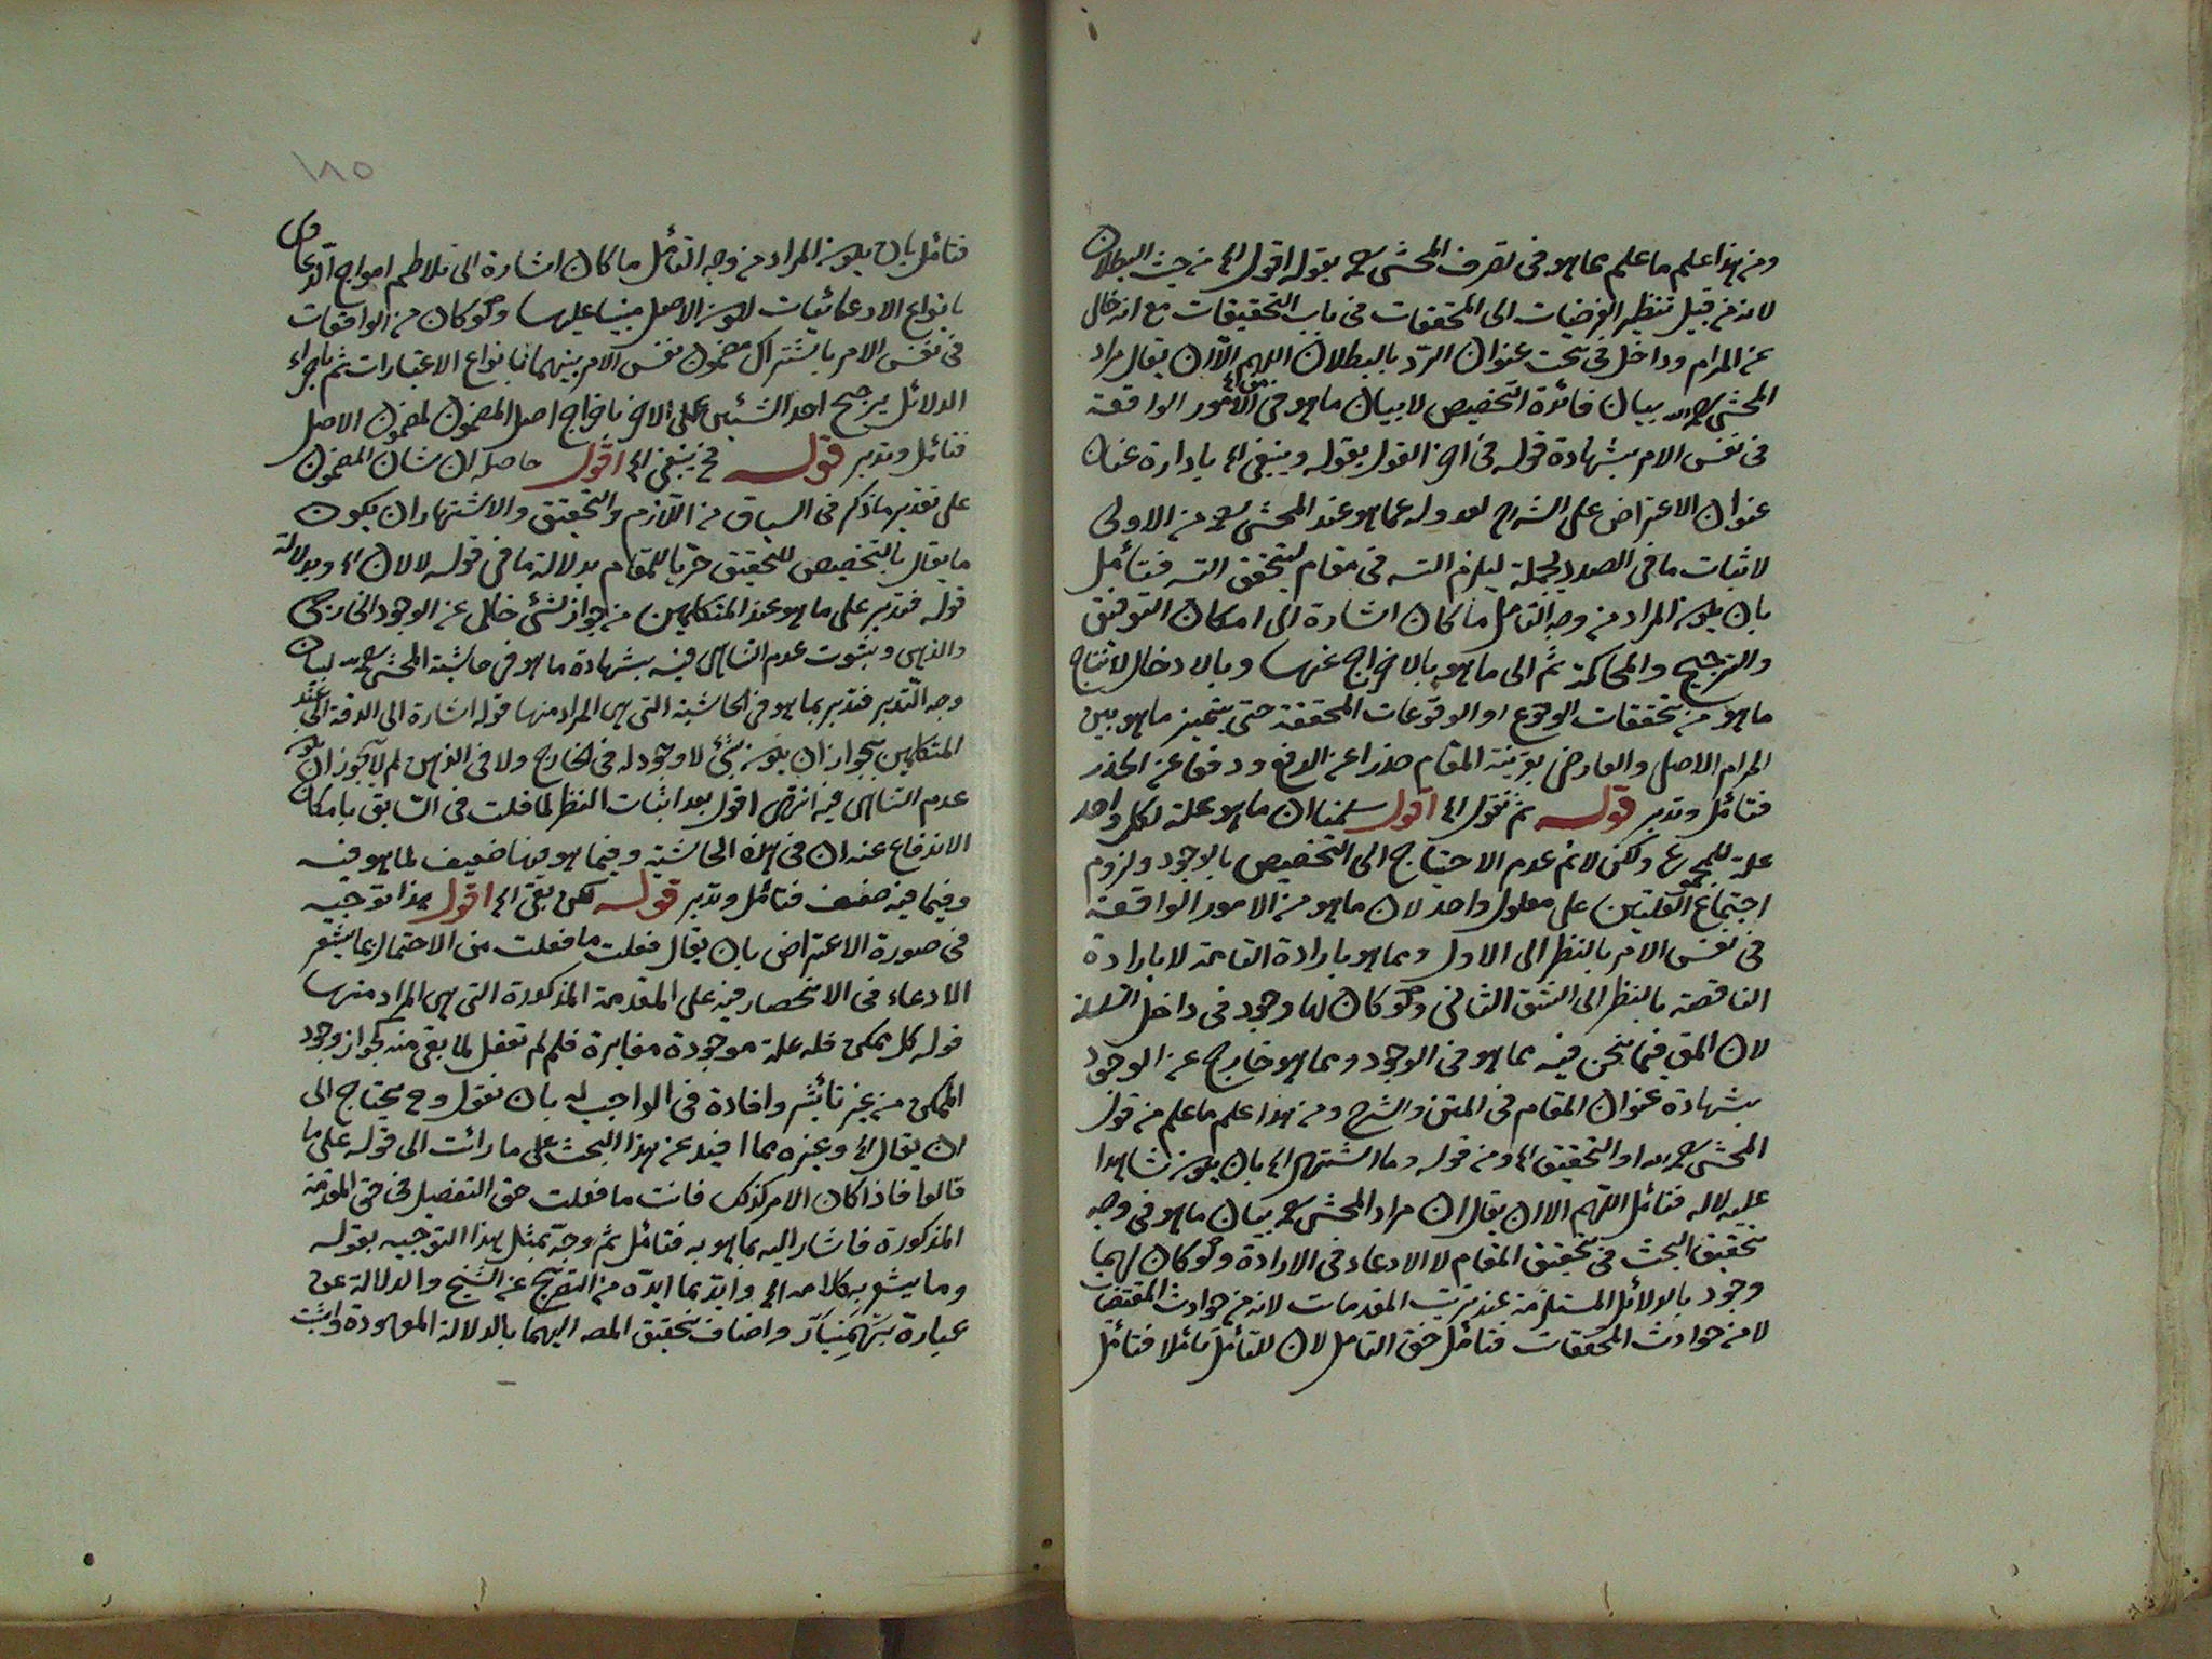 ومن هذا علم ما علم بما هو في تصرف المحشي بقوله اقول الخ من حيث البطلان
لانه من قبيل تنظير الفرضيات الى المحققات في باب التحقيقات مع انه خال
عن المرام وداخل في تحت عنوان الرد بالبطلان اللهم الا ان يقال مراد
المحشي بيان فائدة التخصيص لا بيان ما هو في الامور الواقعة
في نفس الامر بشهادة قوله في اخر القول بقوله وينبغي الخ بادارة عنان
عنوان الاعتراض على الشرح لعدوله عما هو عند المحشي من الاولى
لاثبات ما في الصدد ليلزم في مقام فتأمل
بان يكون المراد من وجه التأمل ما كان اشارة الى امكان التوفيق
والترجيح والمحاكمة ثم الى ما هو بالاخراج عنها وبالادخال لانتاج
ما هو من تحققات الوقوع او الوقوعات المحققة حتى يتميز ما هو بين
المرام الاصل والعارض بقرينة المقام حذرا عن الدفع ودفعا عن الحذر
فتأمل وتدبر قوله ثم نقول الخ اقول سلمنا ان ما هو علة لكل واحد
علة للمجموع ولكن لانم عدم الاحتياج الى التخصيص بالوجود ولزوم
اجتماع العلتين على معلول واحد لان ما هو من الامور الواقعة
في نفس الامر بالنظر الى الاول وما هو بارادة التامة لا بارادة
الناقصة بالنظر الى الشق الثاني ولو كان لها وجود في داخل السلسلة
لان المق فيما نحن فيه بما هو في الوجود وبما هو خارج عن الوجود
بشهادة عنوان المقام في المتن والشرح ومن هذا علم ما علم من قول
المحشي او التحقيق الخ ومن قوله وما اشتهر الخ بان يكون شاهدا
عليه لا له فتأمل اللهم الا ان يقال ان مراد المحشي بيان ما هو في وجه
تحقيق البحث في تحقيق المقام لا الادعاء في الارادة ولو كان لهما
وجود بالدلائل المستلزمة عند ترتيب المقدمات لانه من حوادث المقتضيات
لا من حوادث المحققات فتأمل حق التأمل لان للتأمل تأملا فتأمل
١٨٥
فتأمل بان يكون المراد من وجه التأمل ما كان اشارة الى تلاطم امواج
بانواع الادعائيات لكون الاصل مبنيا عليها ولو كان من الواقعات
في نفس الامر باشتراك مضمون نفس الامر بينهما بانواع الاعتبارات ثم باجراء
الدلائل يرجح احد الشيئين على الاخر باخراج اصل المضمون لمضمون الاصل
فتأمل وتدبر قوله فح ينبغي الخ اقول حاصله ان شان المضمون
على تقدير ما ذكر في السياق من اللازم والتحقيق والاشتهار ان يكون
ما يقال بالتخصيص للتحقيق حريا للمقام بدلالة ما في قوله لا لان الخ وبدلالة
قوله فتدبر على ما هو عند المتكلمين من جواز شئ خال عن الوجود الخارجي
والذهني وبثبوت عدم التناهي فيه بشهادة ما هو في حاشية المحشي لبيان
وجه التدبر فتدبر بما هو في الحاشية التي هي المراد منها قوله اشارة الى الدقة التي عند
المتكلمين بجواز ان يكون شئ لا وجود له في الخارج ولا في الذهن لم لا يجوز ان يكون
عدم التناهي فيه انتهى اقول بعد اثبات النظر لما قلت في السابق بامكان
الاندفاع عنه ان في هذه الحاشية وفيما هو فيها ضعيف لما هو فيه
وفيما فيه ضعف فتأمل وتدبر قوله لكن بقي الخ اقول هذا توجيه
في صورة الاعتراض بان يقال فعلت ما فعلت من الاحتمال بما يشعر
الادعاء في الانحصار فيه على المقدمة المذكورة التي هي المراد منها
قوله كل ممكن فله علة موجودة مغايرة فلم لم تفعل لما بقي منه بجواز وجود
الممكن من غير تأثير وافادة في الواجب له بان تقول وح يحتاج الى
ان يقال الخ وغيره مما افيد عن هذا البحث على ما رأيت الى قوله على ما
قالوا فاذا كان الامر كذلك فانت ما فعلت حق التفصيل في حق المقدمة
المذكورة فاشار اليه بما هو به فتأمل ثم وجه بمثل هذا التوجيه بقوله
وما يشعر به كلامه الخ وايد بما ايده من التصريح عن الشيخ والدلالة عن
عبارة بهمنيار واضاف تحقيق المصـ اليهما بالدلالة المعهودة واثبت